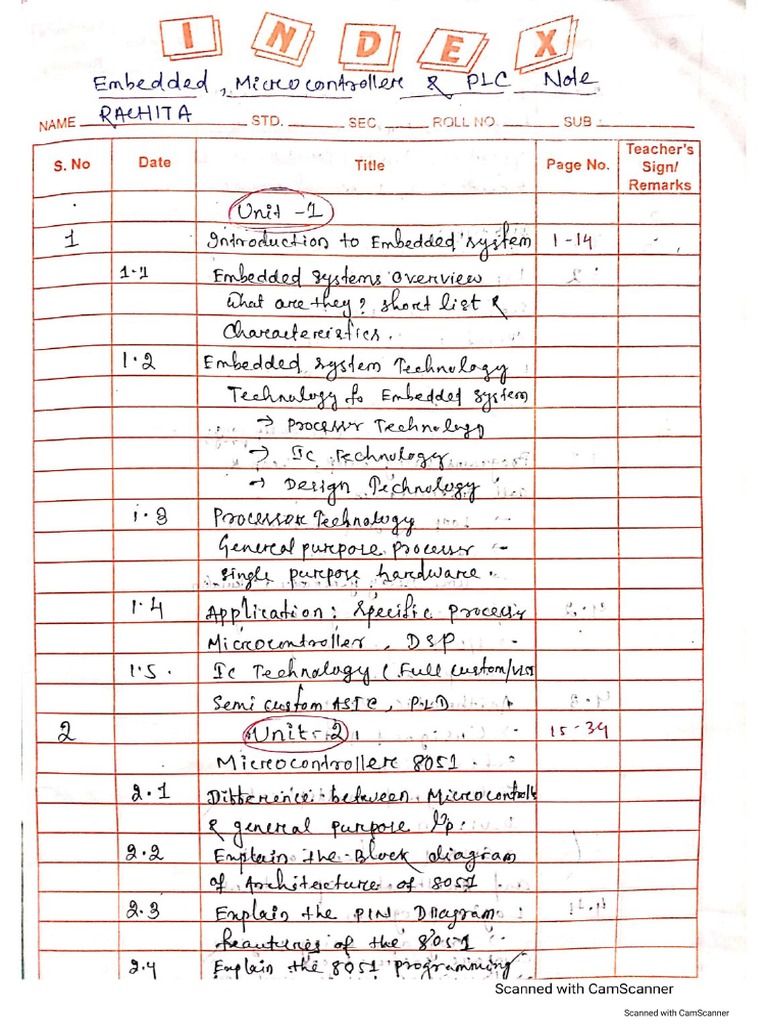 INDEX
Embedded, Microcontroller & PLC Note
NAME RACHITA STD. SEC. ROLL NO. SUB
S. No Date Title Page No. Teacher's Sign/ Remarks
Unit -1
1 Introduction to Embedded system 1-14
1.1 Embedded systems overview
What are they? short list &
characteristics.
1.2 Embedded system Technology
Technology fo Embedded system
→ Processor Technology
→ Ic Technology
→ Design Technology
1.3 Processor Technology
General purpose processor -
single purpose hardware.
1.4 Application: specific process
Microcontroller, DSP
1.5. Ic Technology (Full custom/VLSI
Semi custom ASIC, PLD
2 Unit-2 15-39
Microcontroller 8051
2.1 Difference between Microcontrolle
& general purpose
2.2 Explain the Block diagram
of Architecture of 8051
2.3 Explain the PIN Diagram
feautures of the 8051
2.4 Explain the 8051 programming
Scanned with CamScanner
Scanned with CamScanner